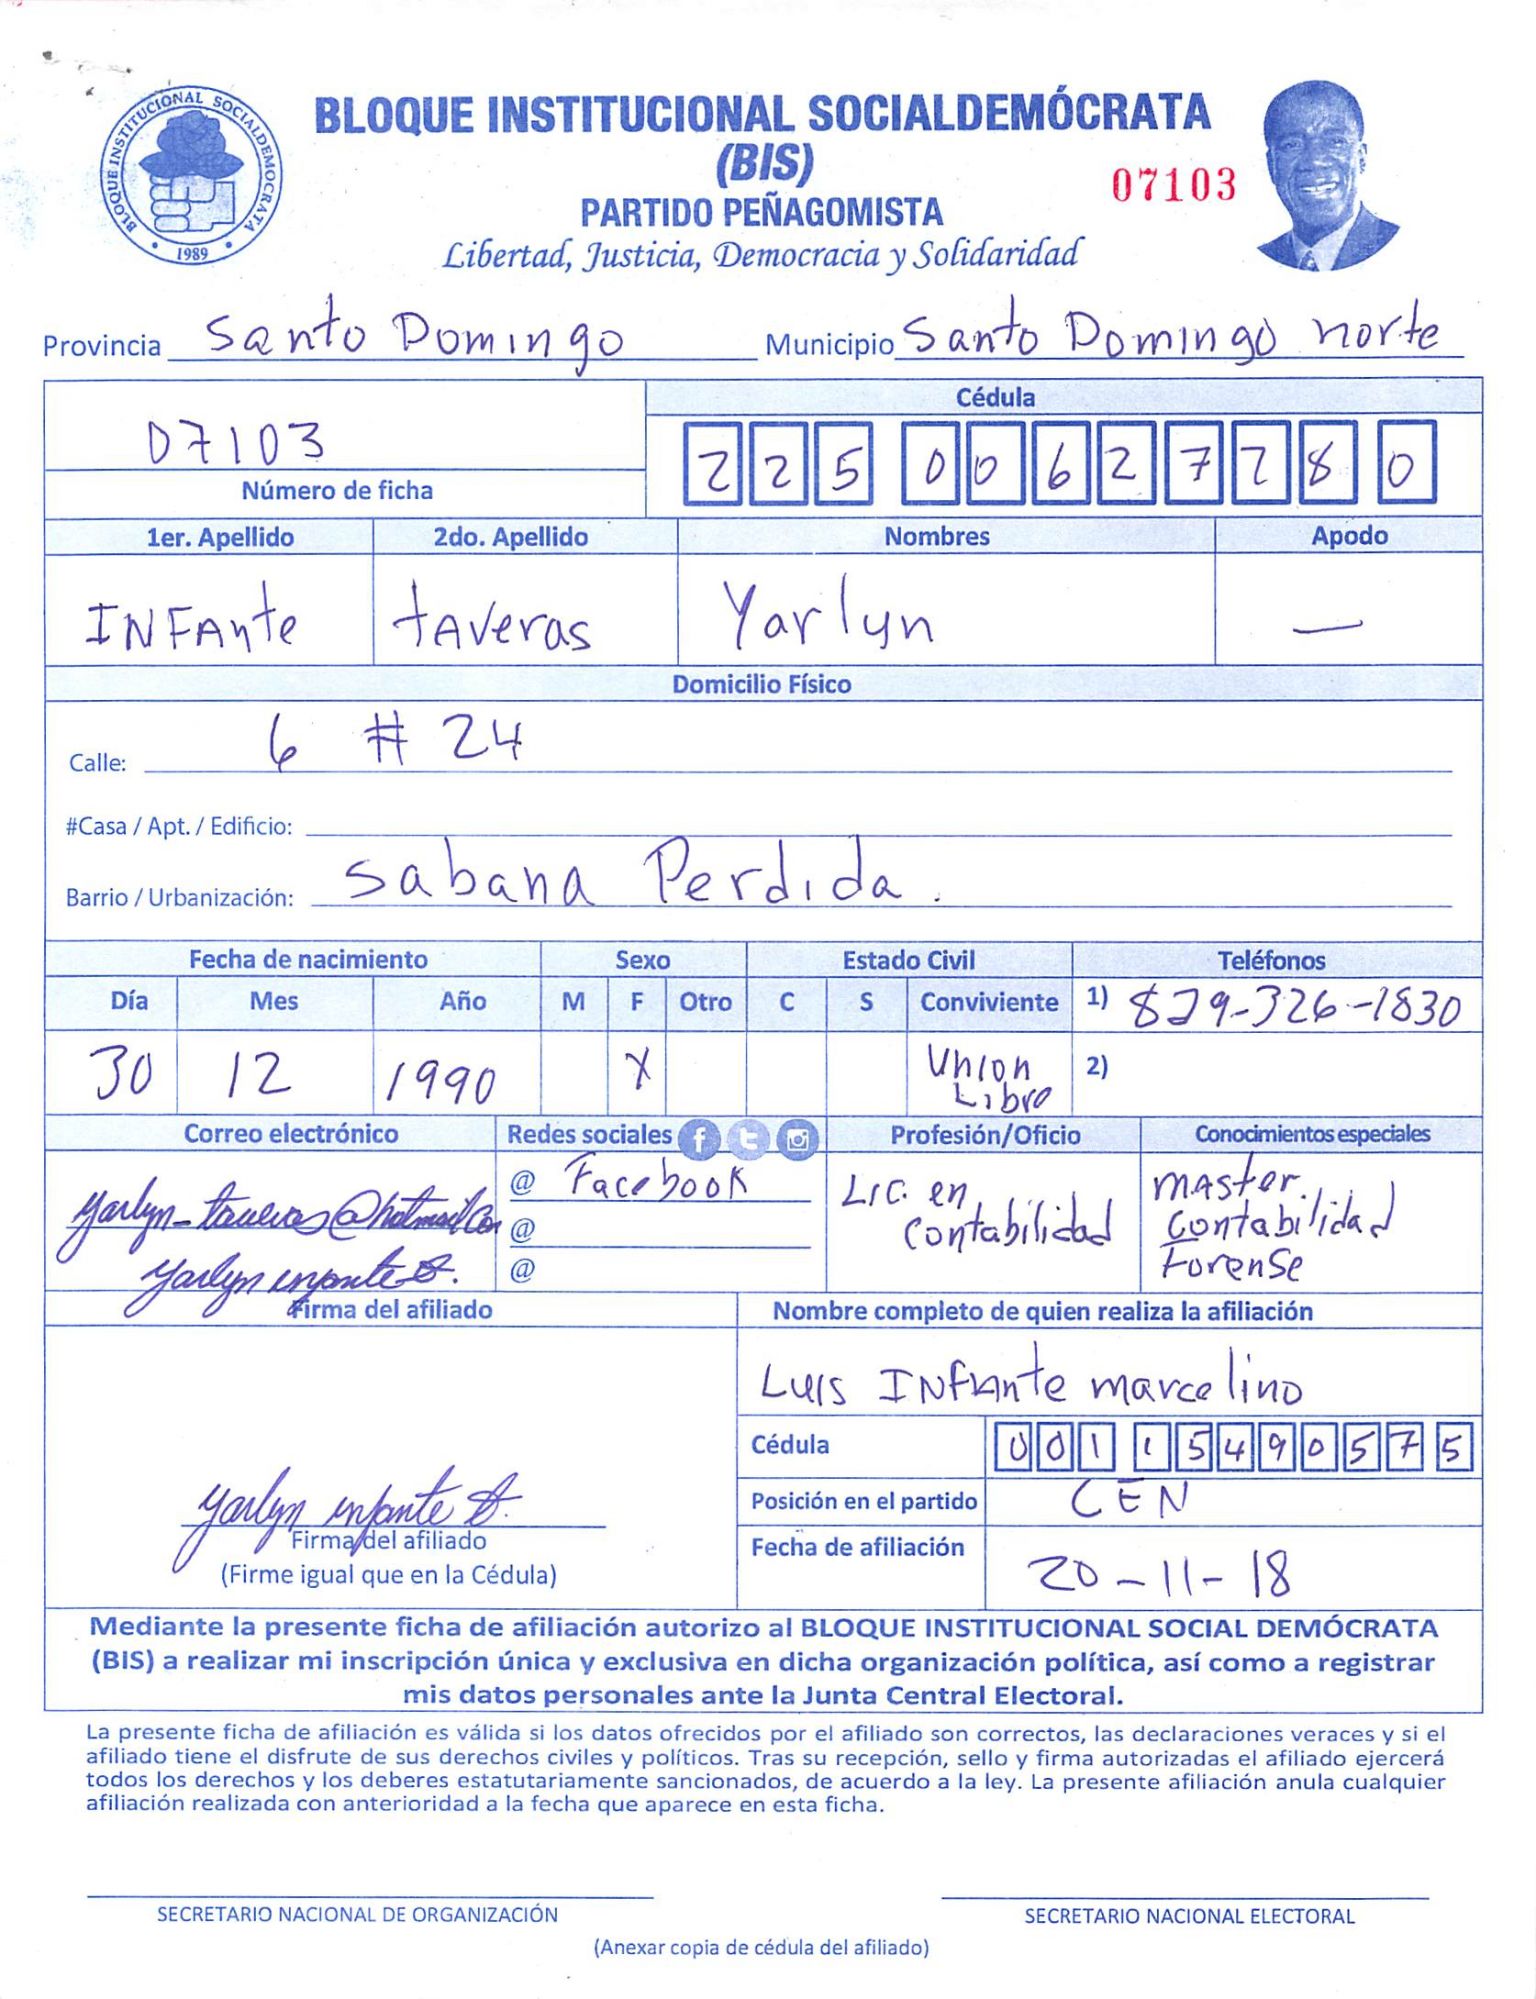 BLOQUE INSTITUCIONAL SOCIALDEMOCRATA
1989
BLOQUE INSTITUCIONAL SOCIALDEMÓCRATA
(BIS)
07103
PARTIDO PEÑAGOMISTA
Libertad, Justicia, Democracia y Solidaridad
Provincia Santo Domingo Municipio Santo Domingo norte
Cédula
07103
225 0062728 0
Número de ficha
1er. Apellido 2do. Apellido Nombres Apodo
INFAnte tAveras Yarlyn —
Domicilio Físico
Calle: 6 # 24
#Casa / Apt. / Edificio:
Barrio / Urbanización: Sabana Perdida.
Fecha de nacimiento Sexo Estado Civil Teléfonos
Día Mes Año M F Otro C S Conviviente 1) 829-326-1830
30 12 1990 X Union Libre 2)
Correo electrónico Redes sociales Profesión/Oficio Conocimientos especiales
@ Facebook Lic. en master.
yarlyn_taveras@hotmail.com @ Contabilidad Contabilidad
yarlyn infante @ Forense
Firma del afiliado Nombre completo de quien realiza la afiliación
Luis INFAnte marcelino
Cédula 001 1549057 5
Posición en el partido CEN
yarlyn infante
Firma del afiliado
Fecha de afiliación 20-11-18
(Firme igual que en la Cédula)
Mediante la presente ficha de afiliación autorizo al BLOQUE INSTITUCIONAL SOCIAL DEMÓCRATA
(BIS) a realizar mi inscripción única y exclusiva en dicha organización política, así como a registrar
mis datos personales ante la Junta Central Electoral.
La presente ficha de afiliación es válida si los datos ofrecidos por el afiliado son correctos, las declaraciones veraces y si el
afiliado tiene el disfrute de sus derechos civiles y políticos. Tras su recepción, sello y firma autorizadas el afiliado ejercerá
todos los derechos y los deberes estatutariamente sancionados, de acuerdo a la ley. La presente afiliación anula cualquier
afiliación realizada con anterioridad a la fecha que aparece en esta ficha.
SECRETARIO NACIONAL DE ORGANIZACIÓN SECRETARIO NACIONAL ELECTORAL
(Anexar copia de cédula del afiliado)